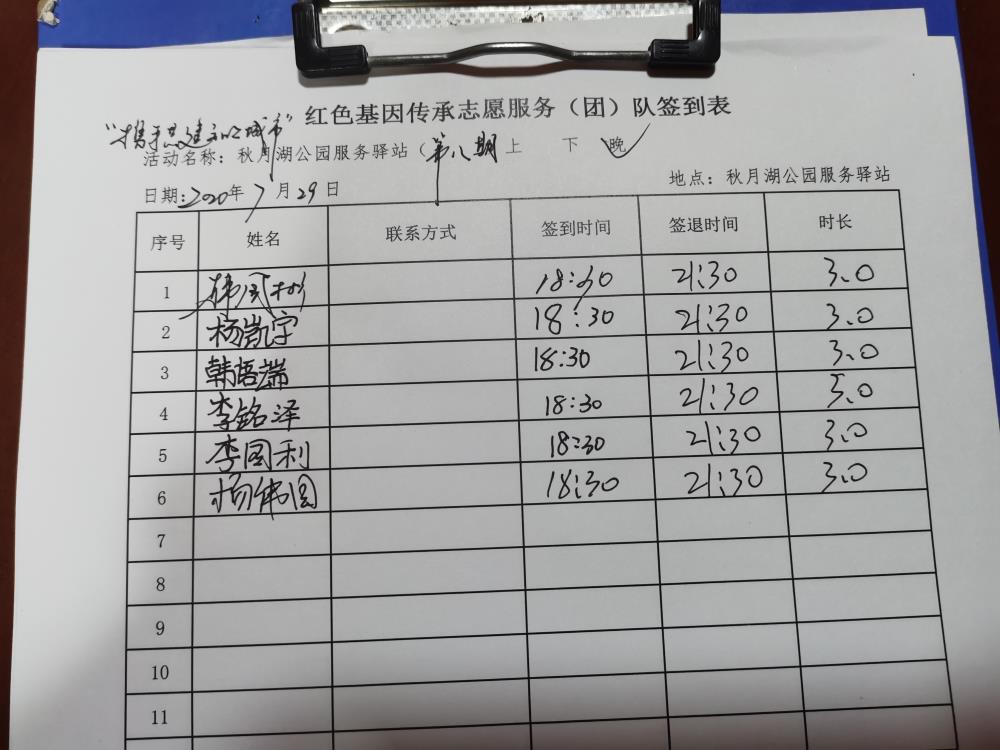 红色基因传承志愿服务（团）队签到表
"携手共建 城市"
活动名称：秋月湖公园服务驿站（第八期 上 下 晚✓
日期：2020年7月29日 地点：秋月湖公园服务驿站
序号 姓名 联系方式 签到时间 签退时间 时长
1 韩 18:30 21:30 3.0
2 杨凯宇 18:30 21:30 3.0
3 韩语端 18:30 21:30 3.0
4 李铭泽 18:30 21:30 3.0
5 李国利 18:30 21:30 3.0
6 杨伟国 18:30 21:30 3.0
7
8
9
10
11